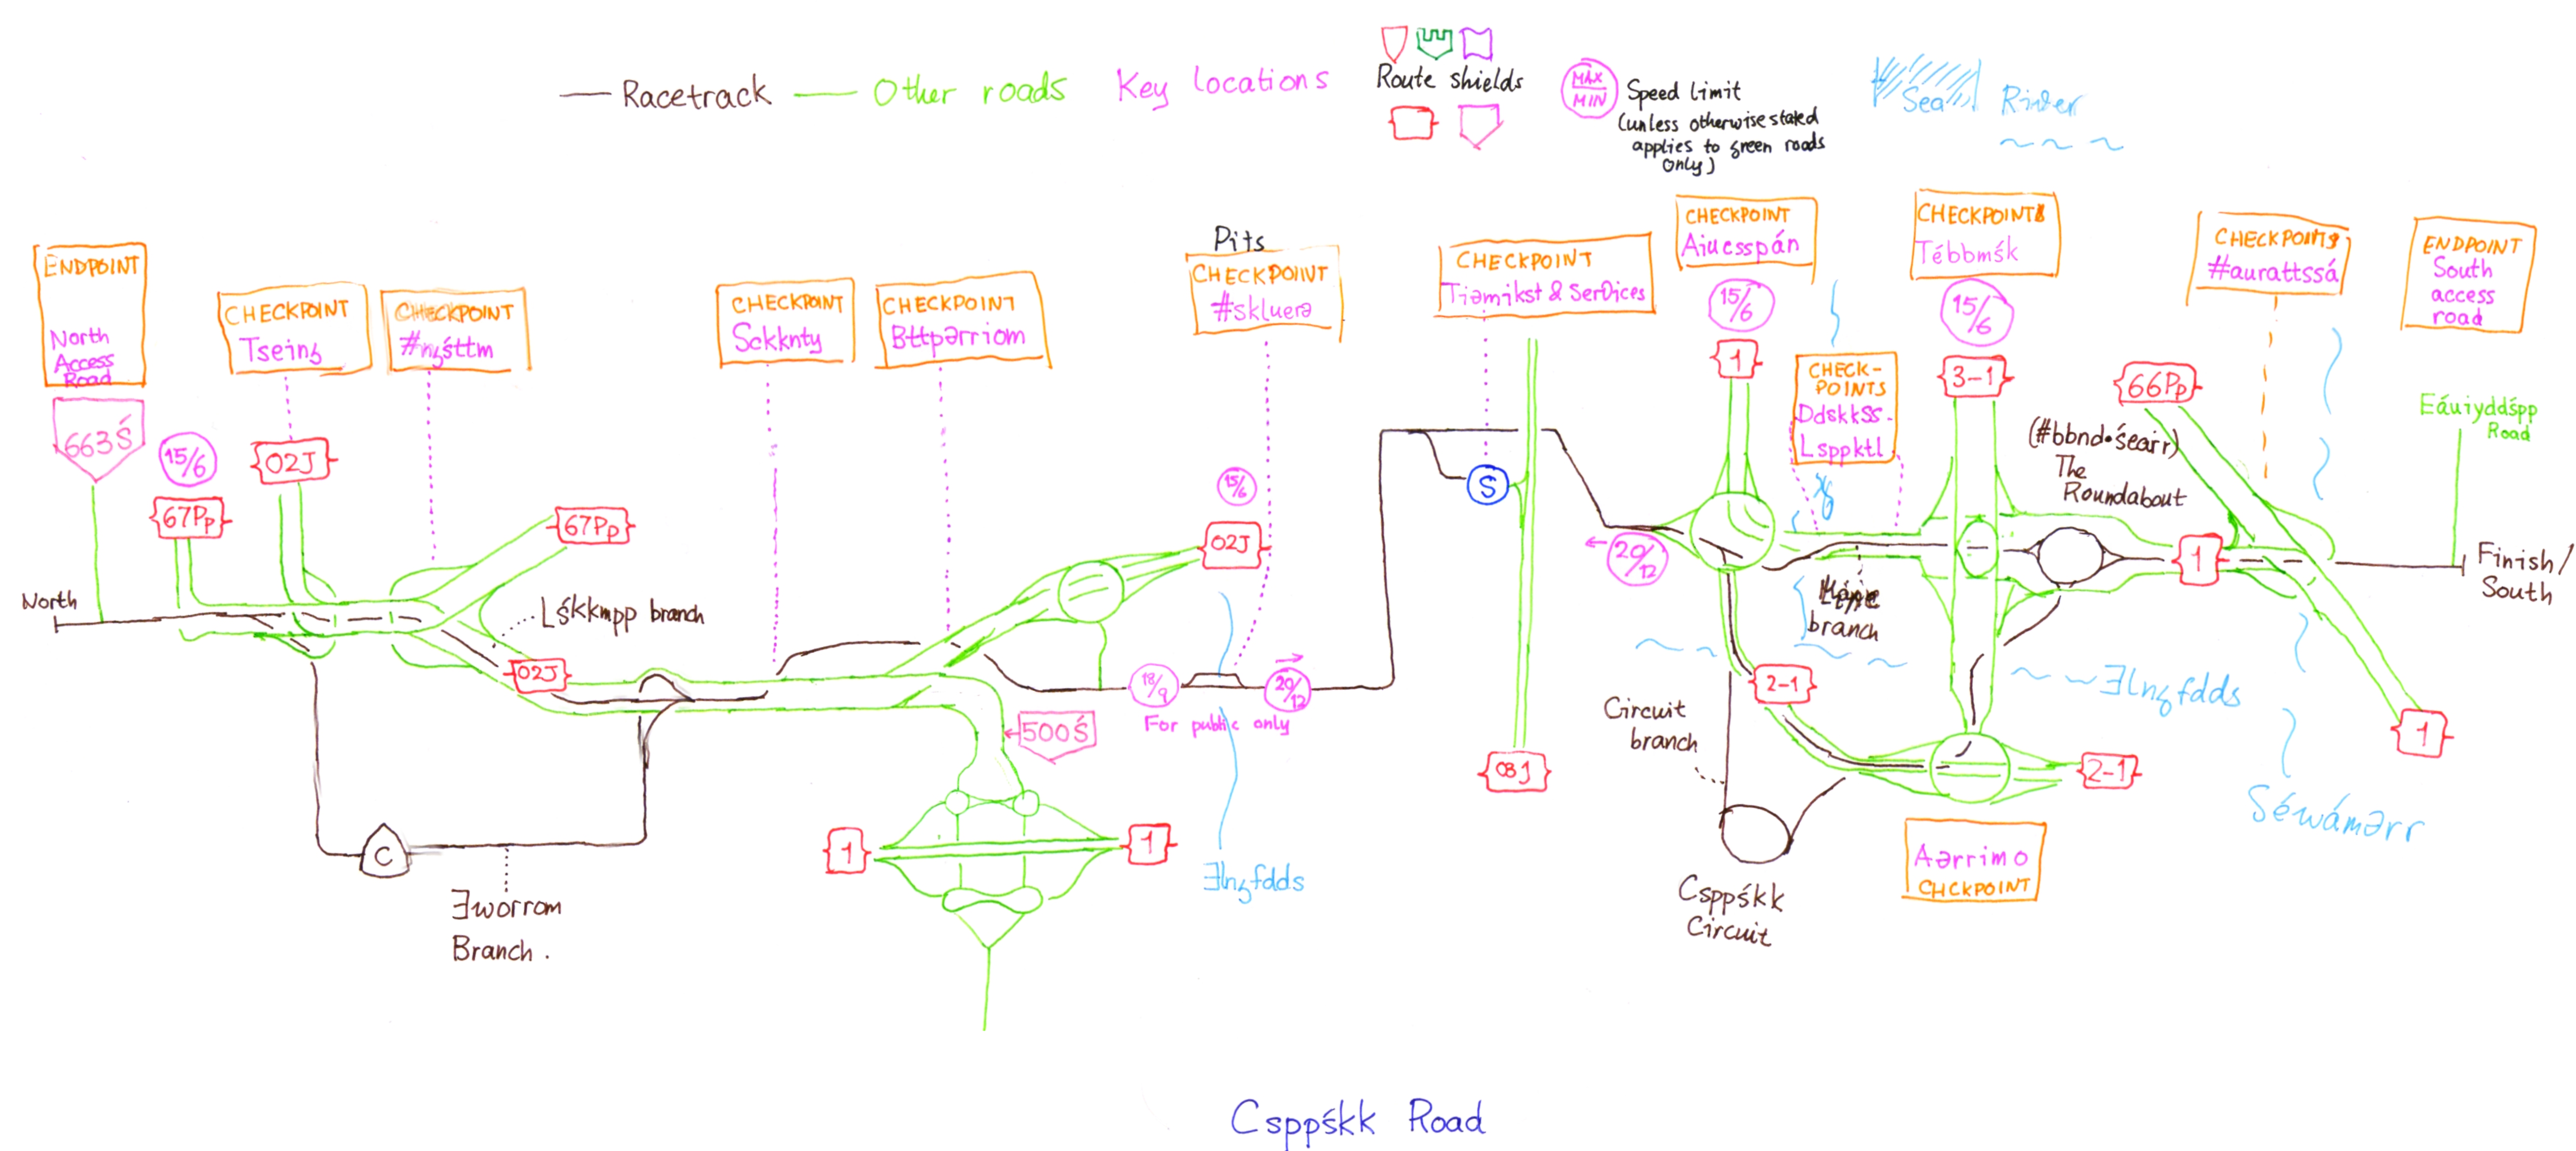 Racetrack
Other roads
Key locations
Route shields
MAX
MIN
Speed limit
(unless otherwise stated
applies to green roads
only)
Sea
River
ENDPOINT
North
Access
Road
663Ś
15/6
67Pp
CHECKPOINT
Tseinȝ
02J
CHECKPOINT
#nȝśttm
67Pp
North
Lśkkmpp branch
02J
C
Ǝworrom
Branch.
CHECKPOINT
Sckknty
CHECKPOINT
Bttpərriom
Pits
CHECKPOINT
#skluerə
15/6
02J
18/9
20/12
For public only
500Ś
1
1
Ǝlnȝfdds
CHECKPOINT
Tiəmikst & Services
S
08J
CHECKPOINT
Aiucsspán
15/6
1
20/12
CHECK-
POINTS
Ddskkss-
Lsppktl
branch
2-1
Circuit
branch
Csppśkk
Circuit
CHECKPOINT
Tébbmśk
15/6
3-1
(#bbnd•śearr)
The
Roundabout
Ǝlnȝfdds
2-1
Aərrimo
CHCKPOINT
66Pp
CHECKPOINT
#aurattssá
1
1
Séwámərr
ENDPOINT
South
access
road
Eáuiyddśpp
Road
Finish/
South
Csppśkk Road